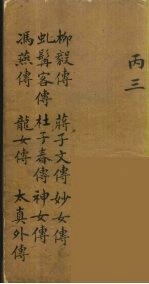 丙三
柳毅傳 蔣子文傳 妙女傳
虬髯客傳 杜子春傳 神女傳
馮燕傳 龍女傳 太真外傳